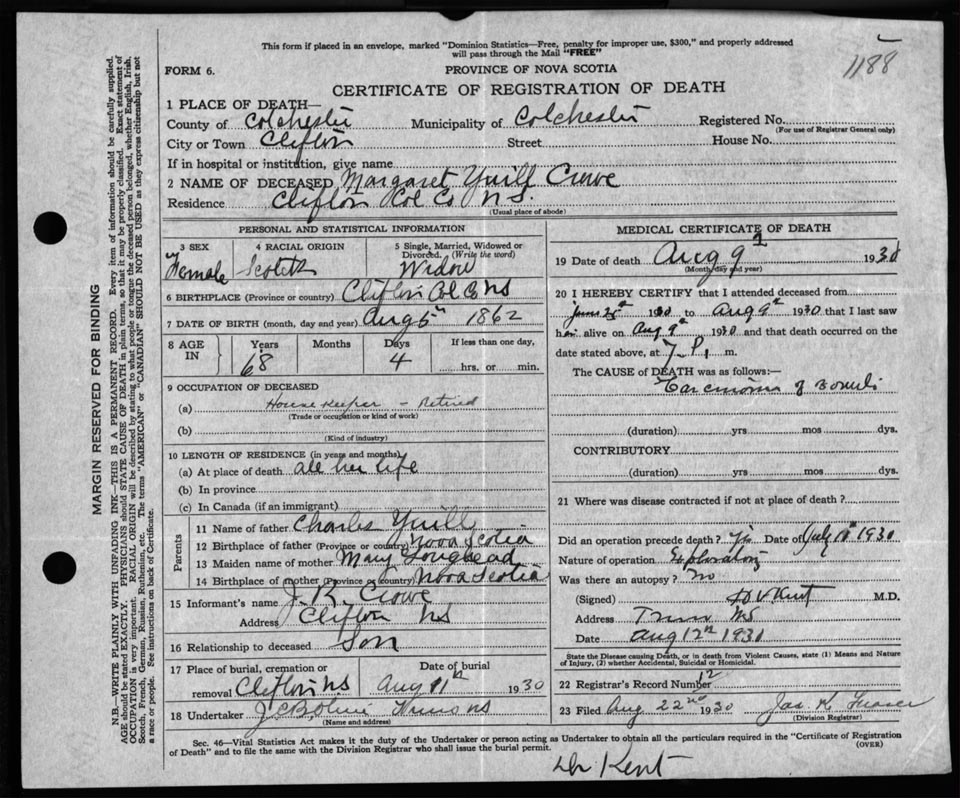 1188
This form if placed in an envelope, marked "Dominion Statistics—Free, penalty for improper use, $300," and properly addressed
will pass through the Mail "FREE"
FORM 6.
PROVINCE OF NOVA SCOTIA
CERTIFICATE OF REGISTRATION OF DEATH
1 PLACE OF DEATH—
County of Colchester Municipality of Colchester Registered No.
(For use of Registrar General only)
City or Town Clifton Street House No.
If in hospital or institution, give name
2 NAME OF DECEASED Margaret Yuill Crowe
Residence Clifton Col Co N S.
(Usual place of abode)
PERSONAL AND STATISTICAL INFORMATION
3 SEX
Female
4 RACIAL ORIGIN
Scotch
5 Single, Married, Widowed or
Divorced. (Write the word)
Widow
6 BIRTHPLACE (Province or country) Clifton Col Co NS
7 DATE OF BIRTH (month, day and year) Aug 5th 1862
8 AGE
IN
Years
68
Months
Days
4
If less than one day,
hrs. or min.
9 OCCUPATION OF DECEASED
(a) House Keeper - Retired
(Trade or occupation or kind of work)
(b)
(Kind of industry)
10 LENGTH OF RESIDENCE (in years and months)
(a) At place of death all her life
(b) In province
(c) In Canada (if an immigrant)
Parents
11 Name of father Charles Yuill
12 Birthplace of father (Province or country) Nova Scotia
13 Maiden name of mother Mary
14 Birthplace of mother (Province or country) Nova Scotia
15 Informant's name J. R. Crowe
Address Clifton NS
16 Relationship to deceased Son
17 Place of burial, cremation or
removal Clifton N.S.
Date of burial
Aug 11th 1930
18 Undertaker
(Name and address)
MEDICAL CERTIFICATE OF DEATH
19 Date of death Aug 9 1930
(Month, day and year)
20 I HEREBY CERTIFY that I attended deceased from
June 1930 to Aug 9th 1930 that I last saw
her alive on Aug 9th 1930 and that death occurred on
date stated above, at 7 P. m.
The CAUSE of DEATH was as follows:—
Carcinoma of Bowels
(duration) yrs mos dys.
CONTRIBUTORY
(duration) yrs mos dys.
21 Where was disease contracted if not at place of death?
Did an operation precede death? Yes Date of July 1930
Nature of operation Exploratory
Was there an autopsy? no
(Signed) Kent M.D.
Address Truro NS
Date Aug 12th 1930
State the Disease causing Death, or in death from Violent Causes, state (1) Means and Nature
of Injury, (2) whether Accidental, Suicidal or Homicidal.
22 Registrar's Record Number 12
23 Filed Aug 22nd 1930 Jas K Fraser
(Division Registrar)
Sec. 46—Vital Statistics Act makes it the duty of the Undertaker or person acting as Undertaker to obtain all the particulars required in the "Certificate of Registration
of Death" and to file the same with the Division Registrar who shall issue the burial permit.
(OVER)
Dr Kent
MARGIN RESERVED FOR BINDING
N.B.—WRITE PLAINLY WITH UNFADING INK—THIS IS A PERMANENT RECORD. Every item of information should be carefully supplied.
AGE should be stated EXACTLY. PHYSICIANS should STATE CAUSE OF DEATH in plain terms, so that it may be properly classified. Exact statement of
OCCUPATION is very important. RACIAL ORIGIN will be described by stating to what people or tongue the deceased person belonged, whether English, Irish,
Scotch, French, German, Russian, Ruthenian, etc. The terms "AMERICAN" or "CANADIAN" SHOULD NOT BE USED as they express citizenship but not
a race or people. See instructions on back of Certificate.